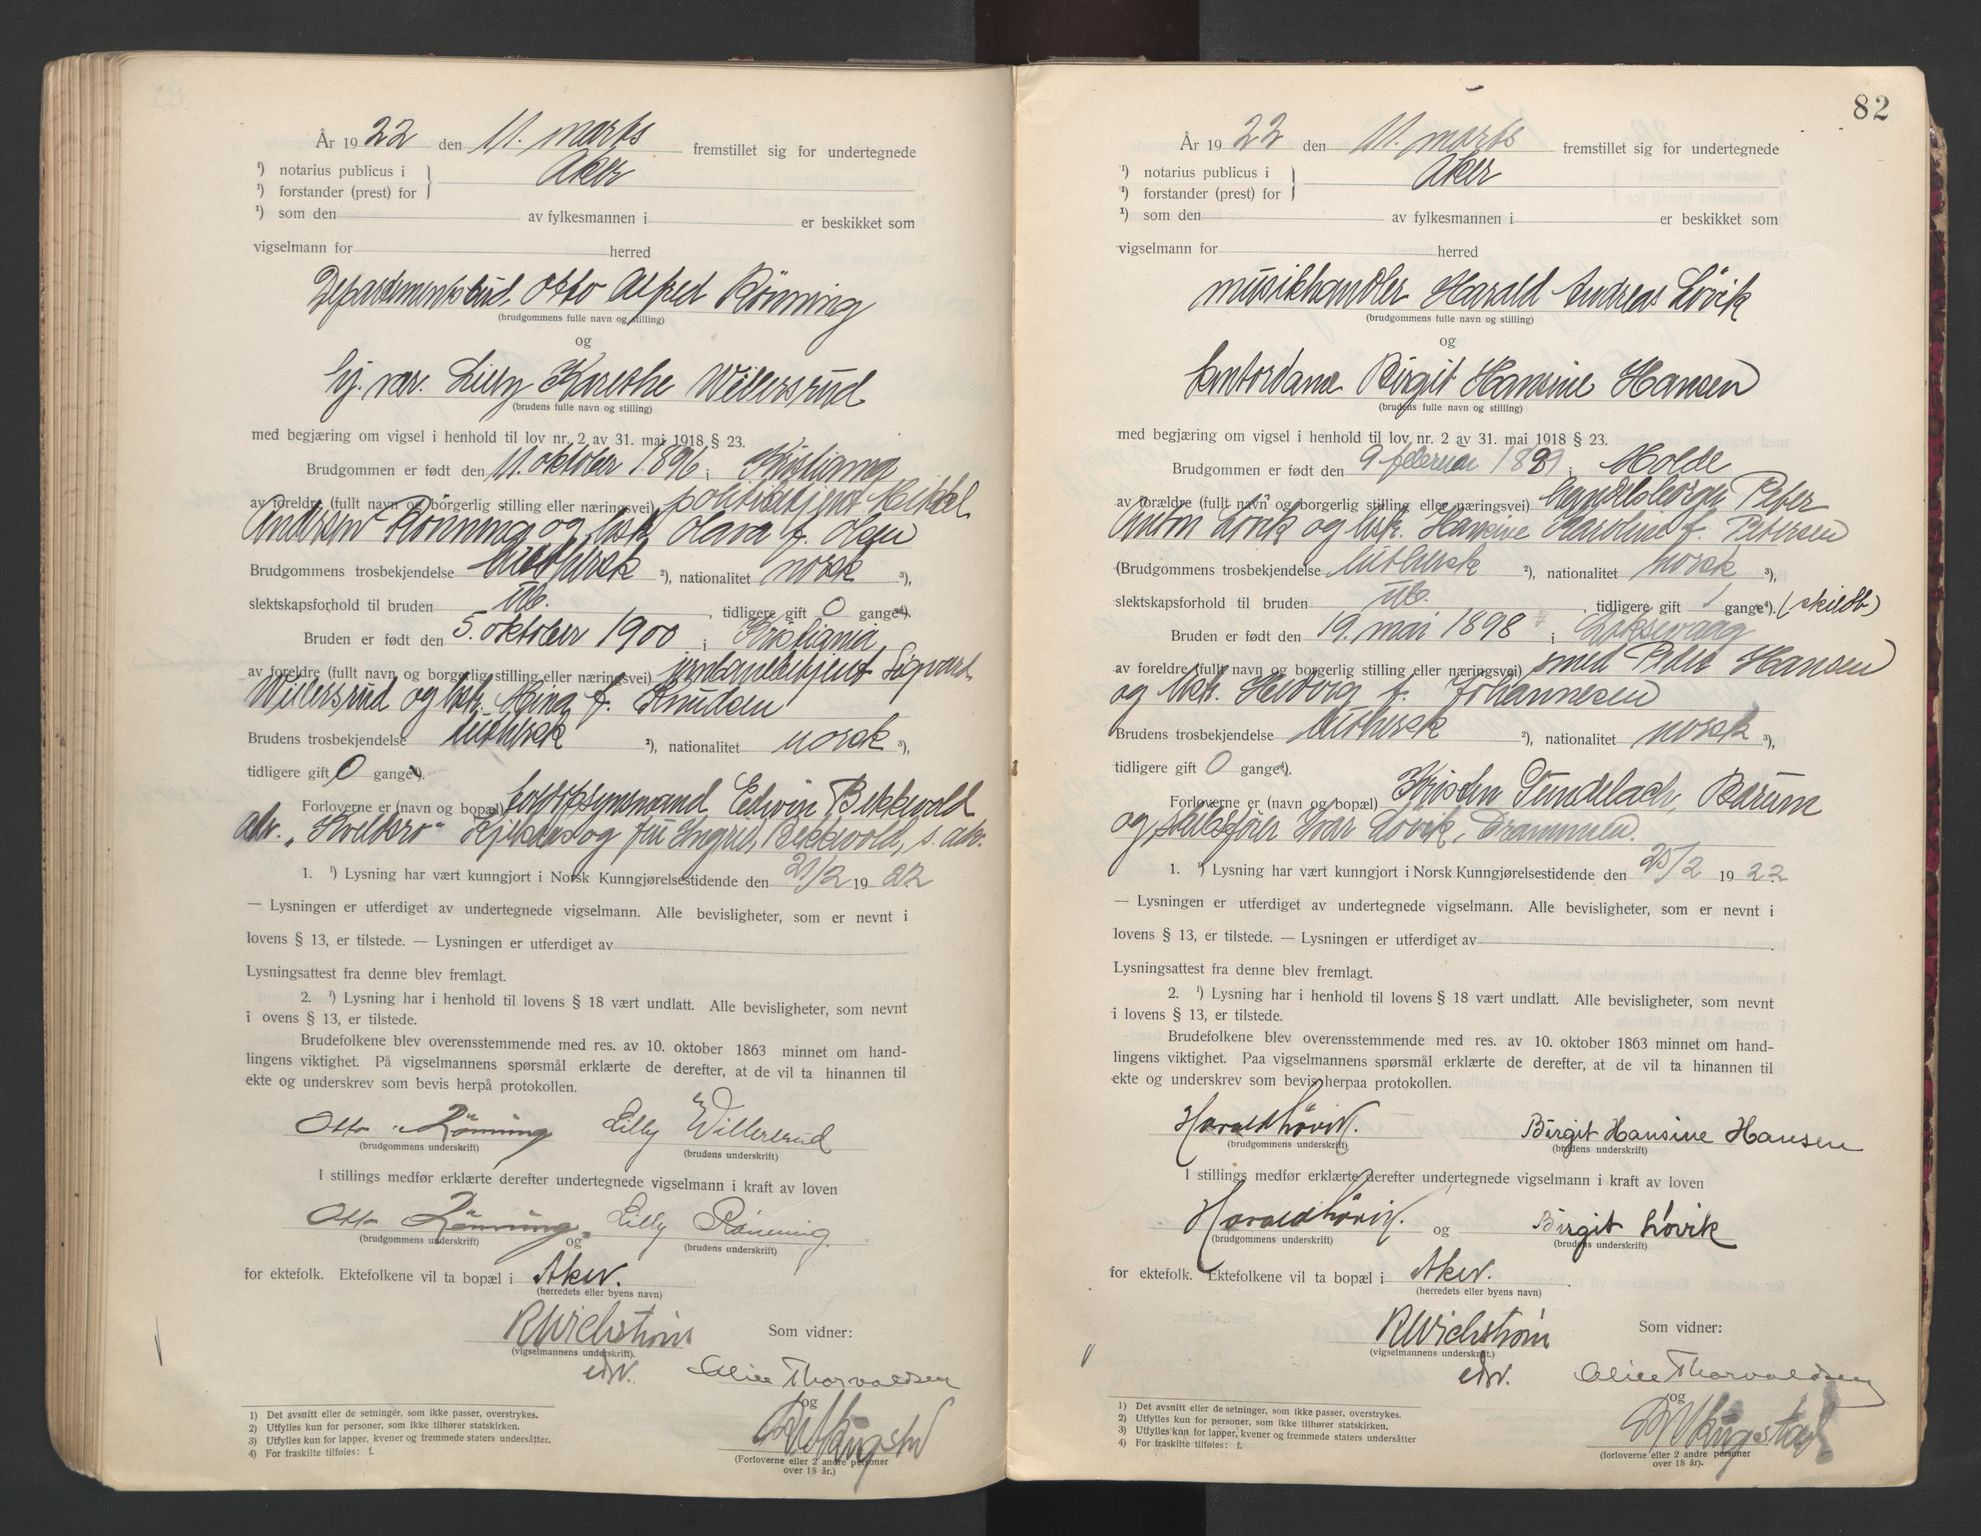 År 1922 den 11. marts fremstillet sig for undertegnede
¹) notarius publicus i
¹) forstander (prest) for } Aker
¹) som den av fylkesmannen i er beskikket som
vigselmann for herred
Departementsbud Otto Alfred Rönning
(brudgommens fulle navn og stilling)
og
hj. vær. Lilly Karethe Willersrud
(brudens fulle navn og stilling)
med begjæring om vigsel i henhold til lov nr. 2 av 31. mai 1918 § 23.
Brudgommen er født den 11. oktober 1896 i Kristiania
av foreldre (fullt navn og borgerlig stilling eller næringsvei) politibetjent Mikkel
Andersen Rönning og hsk. Olava f. Olsen
Brudgommens trosbekjendelse luthersk ²), nationalitet norsk ³),
slektskapsforhold til bruden ub. , tidligere gift 0 gange⁴).
Bruden er født den 5. oktober 1900 i Kristiania
av foreldre (fullt navn og borgerlig stilling eller næringsvei) jernbanebetjent Sigvart
Willersrud og hsk. f. Knudsen
Brudens trosbekjendelse luthersk ²), nationalitet norsk ³),
tidligere gift 0 gange⁴).
Forloverne er (navn og bopæl) Edvin Bekkevold
adr. og frk. Ingrid Bekkevold, s. adr.
1. ¹) Lysning har vært kunngjort i Norsk Kunngjørelsestidende den 21/2 1922
— Lysningen er utferdiget av undertegnede vigselmann. Alle bevisligheter, som er nevnt i
lovens § 13, er tilstede. — Lysningen er utferdiget av
Lysningsattest fra denne blev fremlagt.
2. ¹) Lysning har i henhold til lovens § 18 vært undlatt. Alle bevisligheter, som nevnt
i ovens § 13, er tilstede.
Brudefolkene blev overensstemmende med res. av 10. oktober 1863 minnet om hand-
lingens viktighet. På vigselmannens spørsmål erklærte de derefter, at de vil ta hinannen til
ekte og underskrev som bevis herpå protokollen.
Otto Rönning Lilly Willersrud
(brudgommens underskrift) (brudens underskrift)
I stillings medfør erklærte derefter undertegnede vigselmann i kraft av loven
Otto Rönning og Lilly Rönning.
(brudgommens underskrift) (brudens underskrift)
for ektefolk. Ektefolkene vil ta bopæl i Aker.
(herredets eller byens navn)
RWichstrøm Som vidner:
(vigselmannens underskrift).
edv. Alice Thorvaldsen
og
(Forloverne eller 2 andre personer
over 18 år.)
1) Det avsnitt eller de setninger, som ikke passer, overstrykes.
2) Utfylles kun for personer, som ikke tilhører statskirken.
3) Utfylles kun for lapper, kvener og fremmede staters undersåtter.
4) For fraskilte tilføies: f.
82
År 1922 den 11. marts fremstillet sig for undertegnede
¹) notarius publicus i
¹) forstander (prest) for } Aker
¹) som den av fylkesmannen i er beskikket som
vigselmann for herred
musikhandler Harald Andreas Løvik
(brudgommens fulle navn og stilling)
og
kontordame Birgit Hansine Hansen
(brudens fulle navn og stilling)
med begjæring om vigsel i henhold til lov nr. 2 av 31. mai 1918 § 23.
Brudgommen er født den 9 februar i Molde
av forældre (fullt navn og borgerlig stilling eller næringsvei) handelsborger Peter
Anton Løvik og hsk. Hansine Karoline f. Petersen
(Brudgommens trosbekjendelse luthersk ²), nationalitet norsk ³),
slektskapsforhold til bruden ub. , tidligere gift 1 gange⁴). (skilt)
Bruden er født den 19. mai 1898 i Laksevaag
av foreldre (fullt navn og borgerlig stilling eller næringsvei) smed Peder Hansen
og hsk. Hedvig f. Johannesen
Brudens trosbekjendelse luthersk ²), nationalitet norsk ³),
tidligere gift 0 gange⁴).
Forloverne er (navn og bopæl) Gundelach, Bærum
og Ivar Løvik, Drammen.
1. ¹) Lysning har vært kunngjort i Norsk Kunngjørelsestidende den 25/2 1922
— Lysningen er utferdiget av undertegnede vigselmann. Alle bevisligheter, som er nevnt i
lovens § 13, er tilstede. — Lysningen er utferdiget av
Lysningsattest fra denne blev fremlagt.
2. ¹) Lysning har i henhold til lovens § 18 vært undlatt. Alle bevisligheter, som nevnt
i lovens § 13, er tilstede.
Brudefolkene blev overensstemmende med res. av 10. oktober 1863 minnet om hand-
lingens viktighet. Paa vigselmannens spørsmål erklærte de derefter, at de vil ta hinannen til
ekte og underskrev som bevis herpaa protokollen.
Harald Løvik. Birgit Hansine Hansen
(brudgommens underskrift) (brudens underskrift)
I stillings medfør erklærte derefter undertegnede vigselmann i kraft av loven
Harald Løvik. og Birgit Løvik
(brudgommens underskrift) (brudens underskrift)
for ektefolk. Ektefolkene vil ta bopæl i Aker.
(herredets eller byens navn)
RWichstrøm Som vidner:
(vigselmannens underskrift.)
edv. Alice Thorvaldsen
og
(forloverne eller 2 andre personer
over 18 år).
1) Det avsnitt eller de setninger, som ikke passer, overstrykes.
2) Utfylles kun for personer, som ikke tilhører statskirken.
3) Utfylles kun for lapper, kvener og fremmede staters undersåtter
4) For fraskilte tilføies: f.